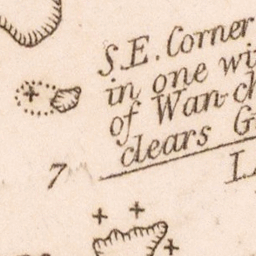 S.E. Corner
in one wi
of Wan-ch
clears G
7